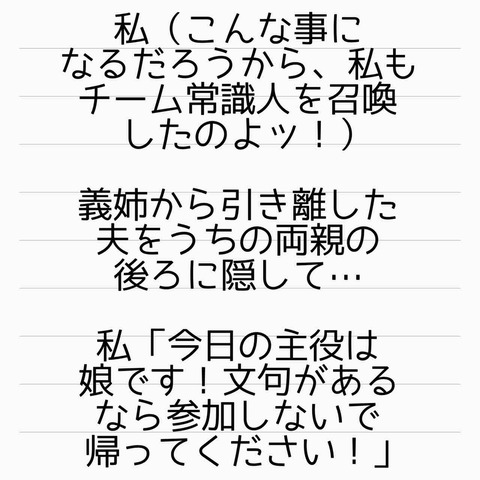 私（こんな事に
なるだろうから、私も
チーム常識人を召喚
したのよッ！）
義姉から引き離した
夫をうちの両親の
後ろに隠して…
私「今日の主役は
娘です！文句がある
なら参加しないで
帰ってください！」